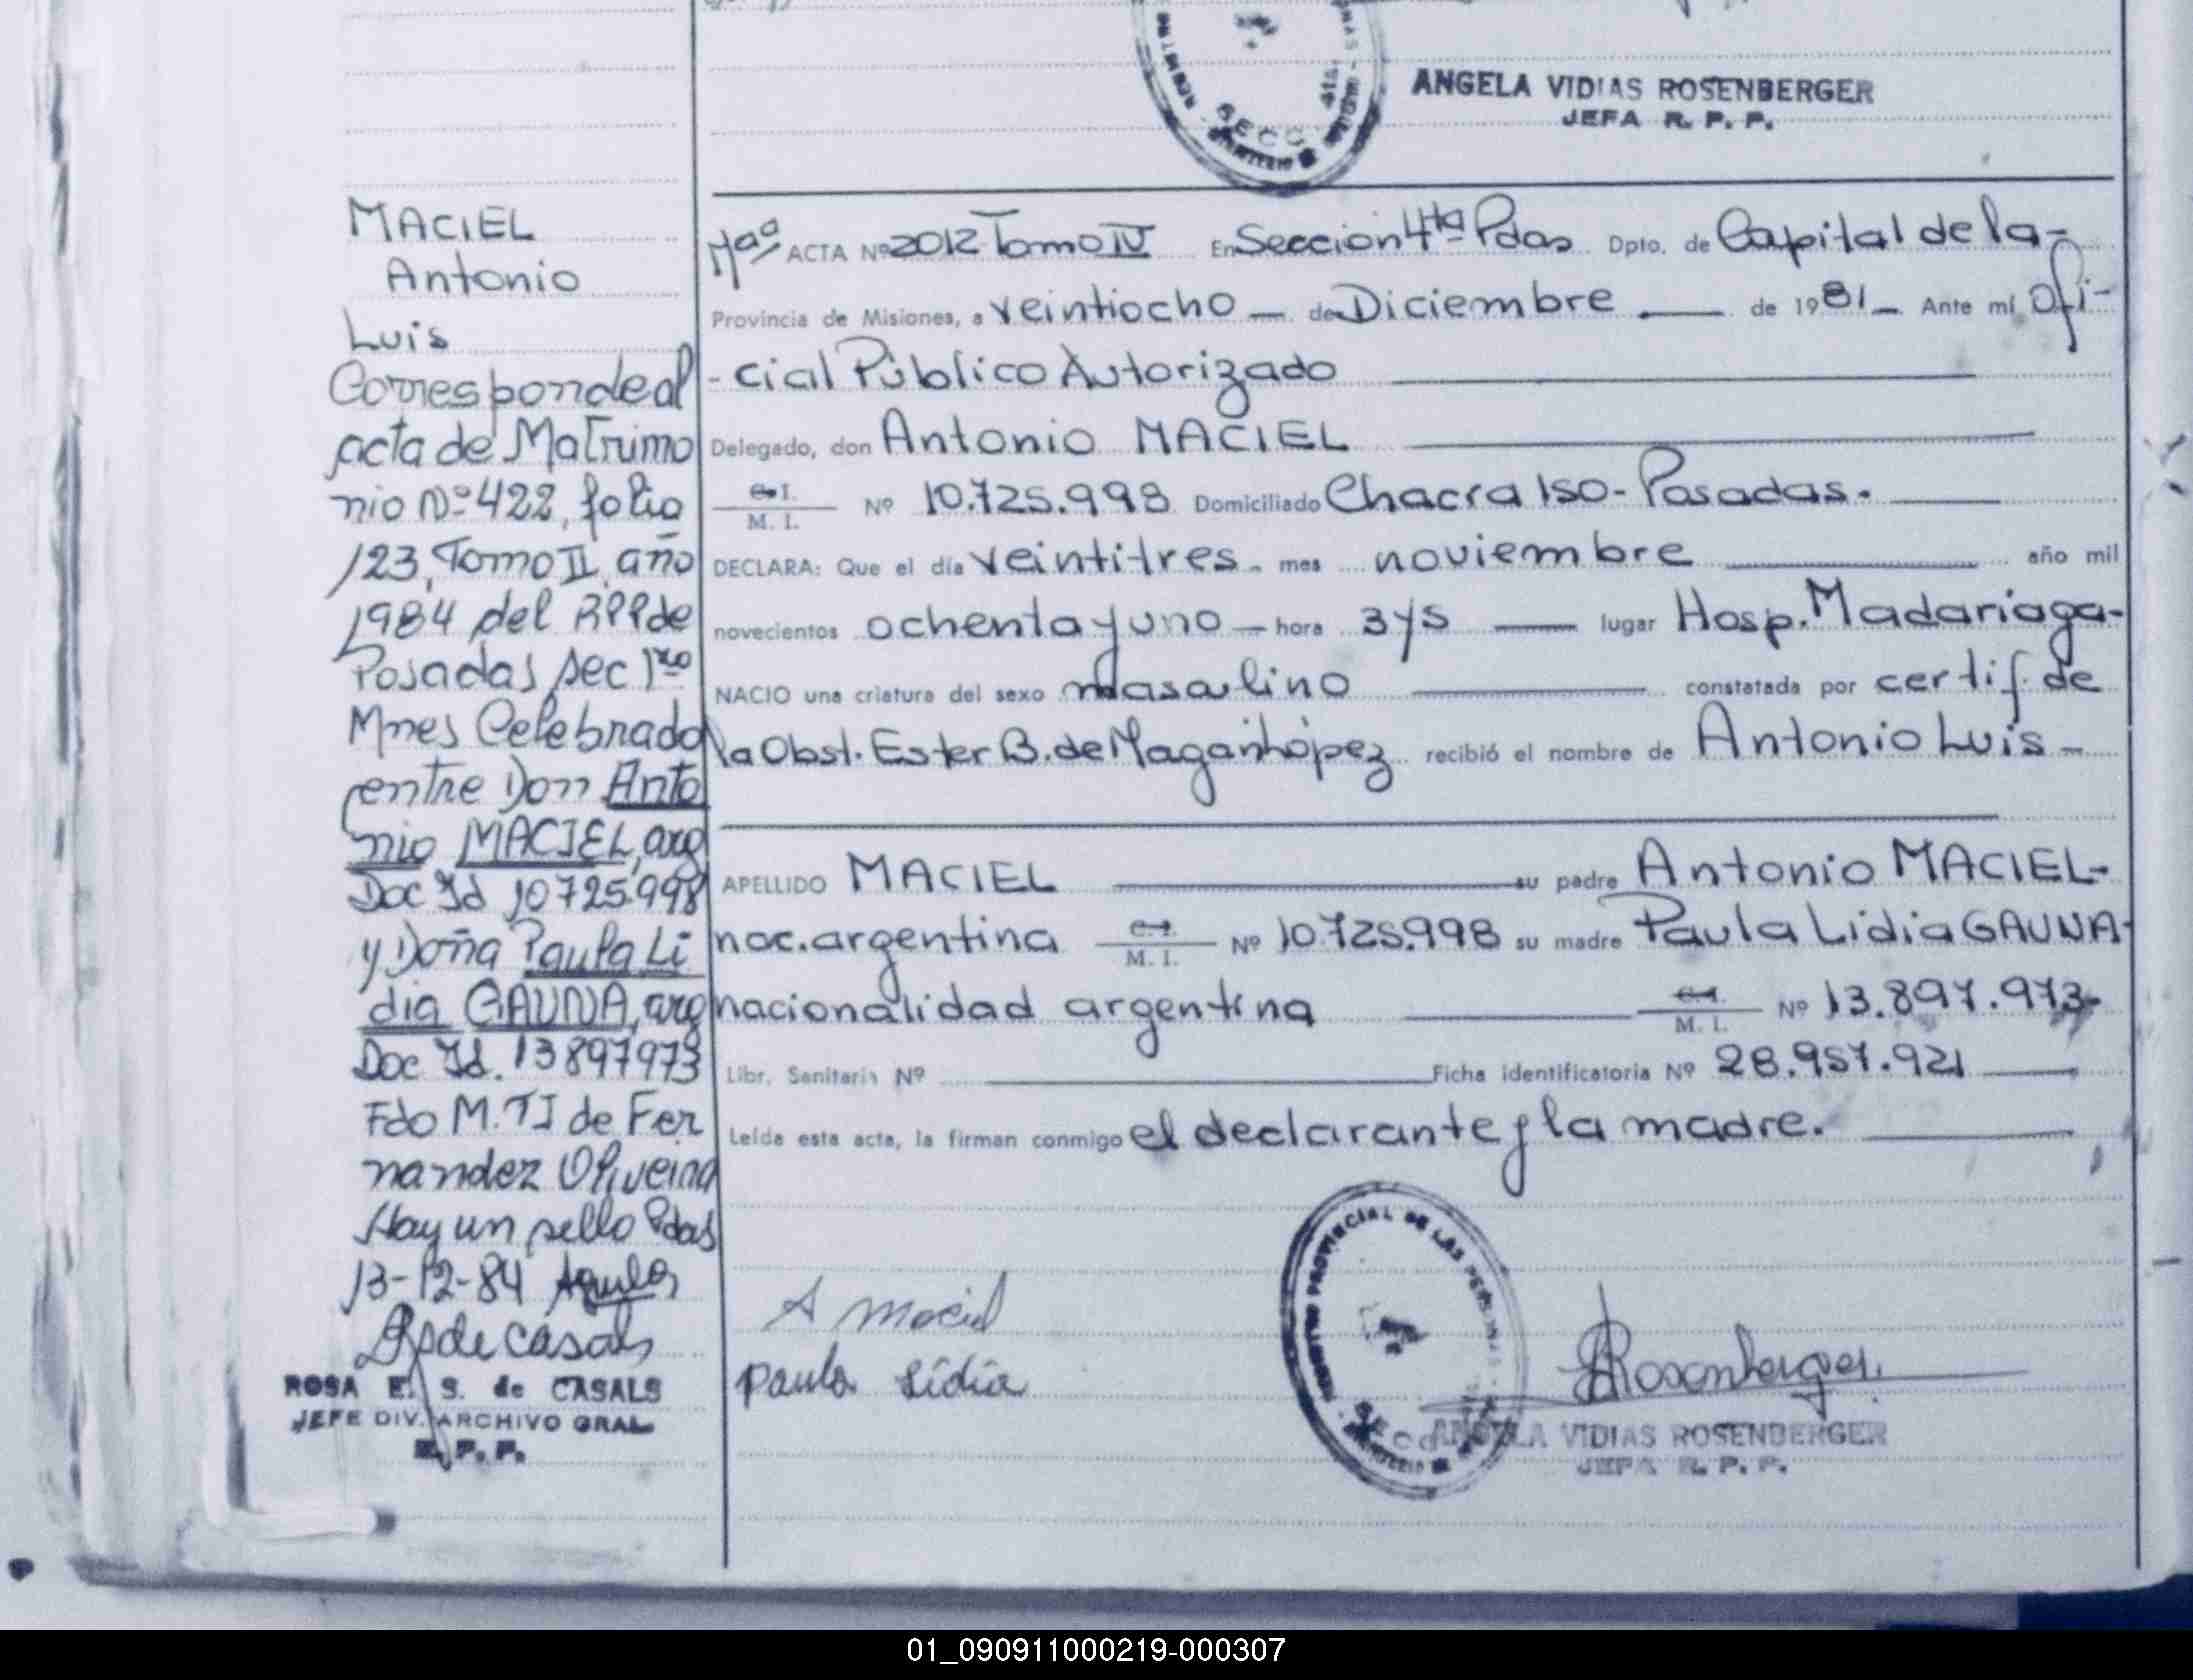 ANGELA VIDIAS ROSENBERGER
JEFA R. P. P.
SECC
MACIEL
Antonio
Luis
Corresponde al
acta de Matrimo
nio Nº 422, folio
123, Tomo II, año
1984 del RPP de
Posadas, sec 1ra
Mnes Celebrado
entre Don Anto
nio MACIEL, arg
Doc Id 10725.998
y Doña Paula Li
dia GAUNA, arg
Doc Id. 13897973
Fdo M. T J de Fer
nandez Oliveira
Hay un sello Pdas
13-12-84
ROSA E. S. de CASALS
JEFE DIV. ARCHIVO GRAL.
R. P. P.
ACTA Nº 2012 Tomo IV En Seccion 4ta Pdas Dpto. de Capital de la-
Provincia de Misiones, a veintiocho — de Diciembre — de 1981 — Ante mí Ofi-
- cial Público Autorizado
Delegado, don Antonio MACIEL
C. I.
M. I. Nº 10.725.998 Domiciliado Chacra 150 - Posadas.
DECLARA: Que el día veintitres. mes noviembre año mil
novecientos ochenta y uno — hora 3 y 5 — lugar Hosp. Madariaga-
NACIO una criatura del sexo masculino constatada por certif. de
la Obst. Ester B. de recibió el nombre de Antonio Luis —
APELLIDO MACIEL su padre Antonio MACIEL-
nac. argentina C. I.
M. I. Nº 10.725.998 su madre Paula Lidia GAUNA-
nacionalidad argentina C. I.
M. I. Nº 13.897.973-
Libr. Sanitaria Nº Ficha identificatoria Nº 28.957.921
Leída esta acta, la firman conmigo el declarante y la madre.
A Maciel
Paula Lidia
REGISTRO PROVINCIAL DE LAS PERSONAS
SECC
Rosenberger.
ANGELA VIDIAS ROSENBERGER
JEFA R. P. P.
01_090911000219-000307